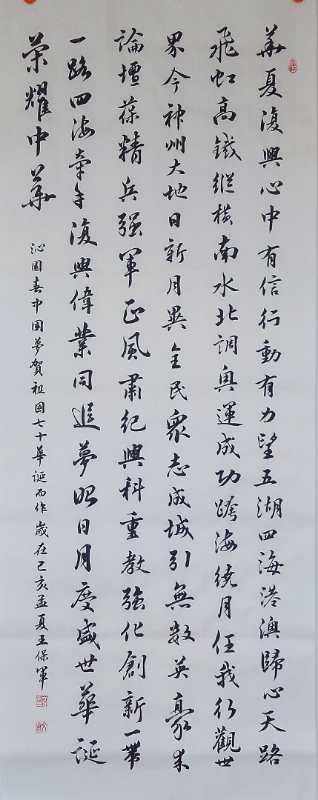 華夏復興心中有信行動有力望五湖四海港澳歸心天路
飛虹高鐵縱橫南水北調奧運成功跨海繞月任我行觀世
界今神州大地日新月異全民衆志成城引無數英豪來
論壇葆精兵强軍正風肅紀興科重教强化創新一帶
一路四海牽手復興偉業同追夢昭日月慶盛世華誕
榮耀中華
沁園春中國夢賀祖國七十華誕而作歲在己亥孟夏王保軍